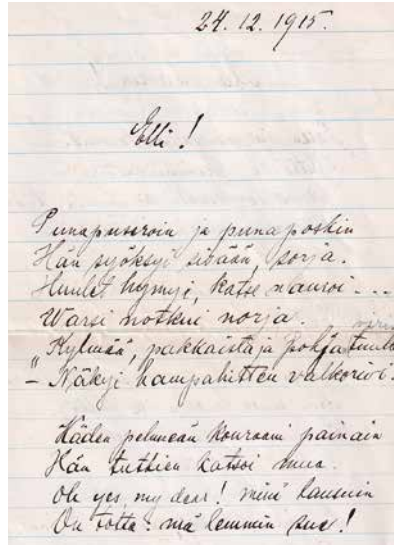 24. 12. 1915.
Elli!
Punapuseroin ja punaposkin
Hän syöksyi sisään, sorja.
Huulet hymyi, katse nauroi...
Warsi notkui norja.
"Kylmää, pakkaista ja pohja tuul
– Näkyi hampahitten valkorivi.
Häden kouraani painain
Hän tutkien katsoi mua.
Oh yes, my dear! minä lausuin
On totta: mä lemmin sua!